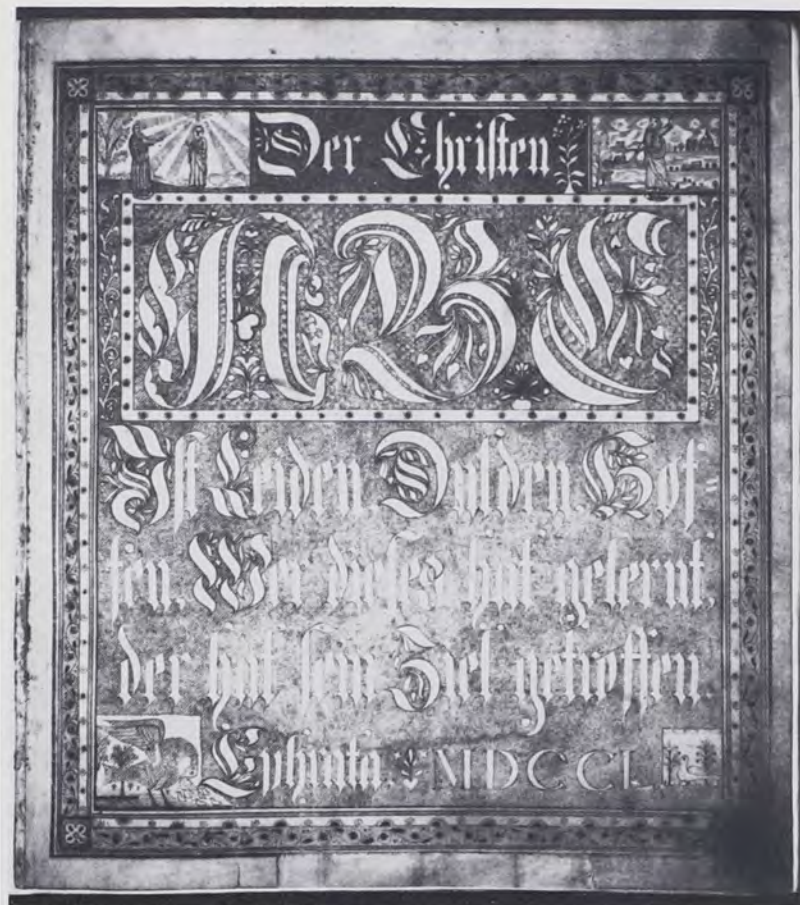 Der Christen
ABC
Ist Leiden, Dulden, Hof⸗
fen. Wer dieses hat gelernt,
der hat sein Ziel getroffen.
Ephrata. MDCCL.